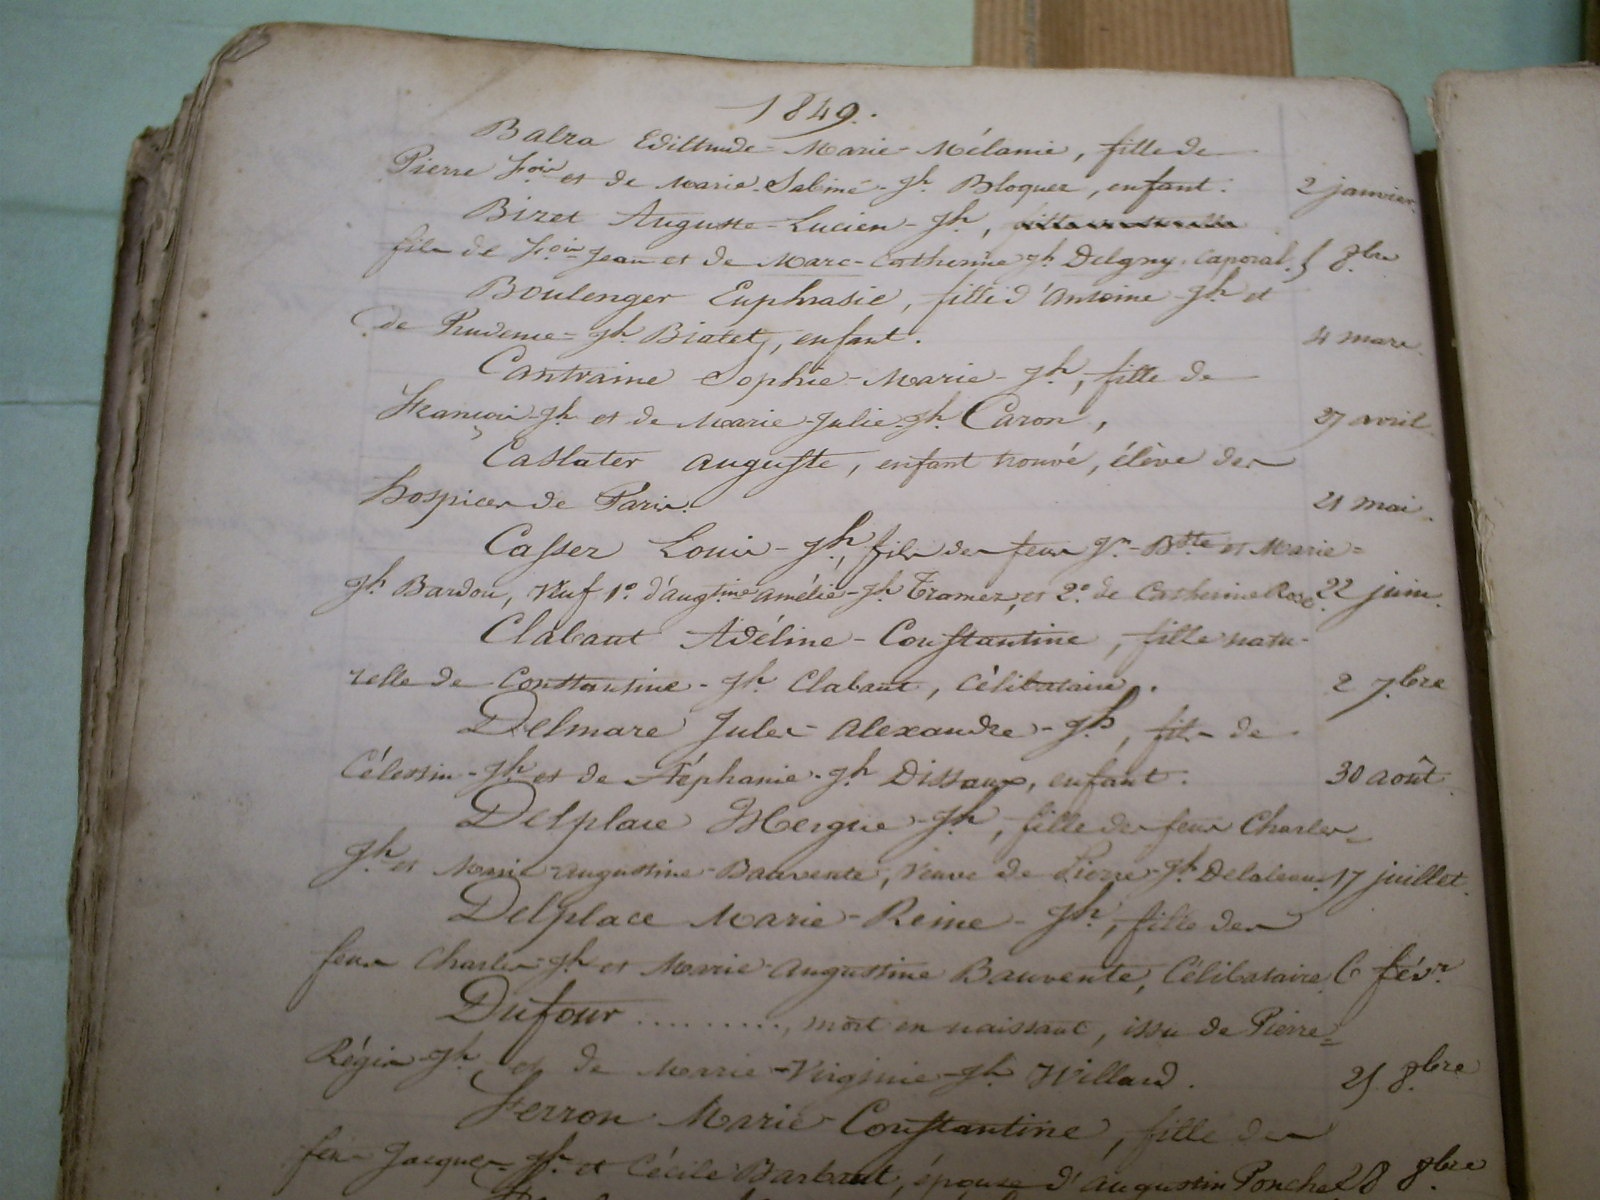 1849.
Balza Ediltrude-Marie-Mélanie, fille de
Pierre fois et de Marie-Sabine-Jh. Bloquez, enfant. 2 janvier.
Bizet Auguste-Lucien-Jh,
fils de fois-Jean et de Marc-Catherine Jh Delgny, caporal. 5 8bre
Boulenger Euphrasie, fille d'Antoine-Jh et
de Prudence-Jh enfant. 4 mars.
Cantraine Sophie-Marie-Jh, fille de
François-Jh et de Marie-Julie-Jh. Caron, 27 avril.
Caslater auguste, enfant trouvé, élève des
hospices de Paris. 21 mai.
Casser Louis-Jh, fils des feux Jn-Btte et Marie=
Jh Bardou, veuf 1° d'augtine amélie-Jh Tramez, et 2° de Catherine Rose. 22 juin.
Clabaut Adéline-Constantine, fille natu-
relle de Constantine-Jh Clabaut, Célibataire. 2 7bre
Delmare Jules-Alexandre-Jh, fils de
Célestin-Jh et de Stéphanie-Jh Dissaux, enfant. 30 août.
Delplace Jh, fille des feux Charles=
Jh et Marie-augustine-Bauvente, veuve de Pierre-Jh Delaleau. 17 juillet.
Delplace Marie-Reine-Jh, fille des
feux Charles-Jh et Marie-augustine Bauvente, Célibataire. 6 févr.
Dufour .........., mort en naissant, issu de Pierre=
Régis-Jh, et de Marie-Virginie-Jh Willard. 25 8bre
Ferron Marie-Constantine, fille des
feux Jacques-Jh et Cécile Barbaut, épouse d'augustin Ponche 28 8bre